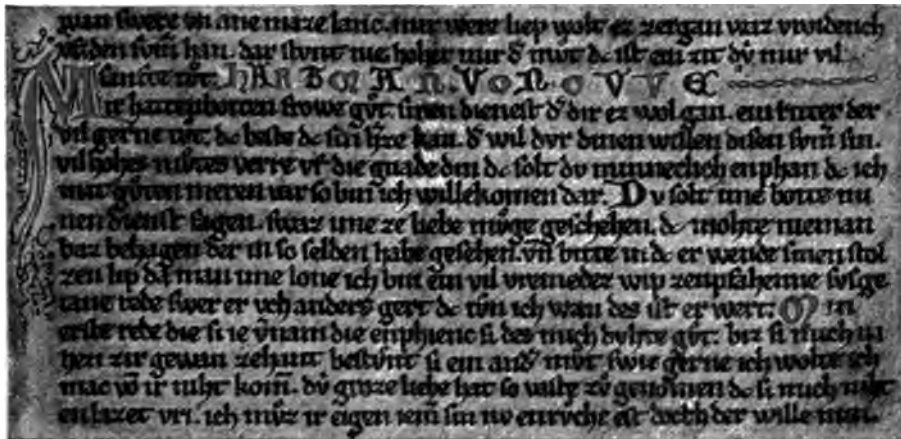 man swere vn ane maze lanc. nur wert liep wolt ez zergan waz vroiden ich
vf den svm̄ han. dar stvnt nie hoher mvt
sanfte tvt. HARTMAN. VON OVVE
Mir hat enboten frowe gv̊t. sinen dienest d̕ dir ez wol gan. ein ritter der
vil gerne tv̊t. dc beste dc sin h̕ze kan. d̕ wil dvr dinen willen disen svm̕ sin.
vil hohes mv̊tes verre vf die gnade din dc solt dv minneclich enphan dc ich
mit gv̊ten meren var so bin ich willekomen dar. Dv solt ime botte mi
nen dienst sagen. swaz ime ze liebe mv̊ge geschehen. dc mohte nieman
baz behagen der in so selden habe gesehen. vn̄ bitte in dc er wende sinen stol
zen lip da man ime lone ich bin ein vil vremedez wip zenpfahenne svsge
tane rede swes er och anders gert dc tv̊n ich wan des ist er wert. Min
erste rede die si ie v̕nam die enphienc si des mich dvhte gv̊t. biz si mich na
hen zir gewan zehant bestv̊nt si ein and̕ mv̊t swie gerne ich wolte ich
mac vō ir niht kom̄. dv̊ groze liebe hat so vaste zv̊ genomen dc si mich niht
en lazet vri. ich mv̊z ir eigen iem̕ sin nv enrv̊che est der wille min.